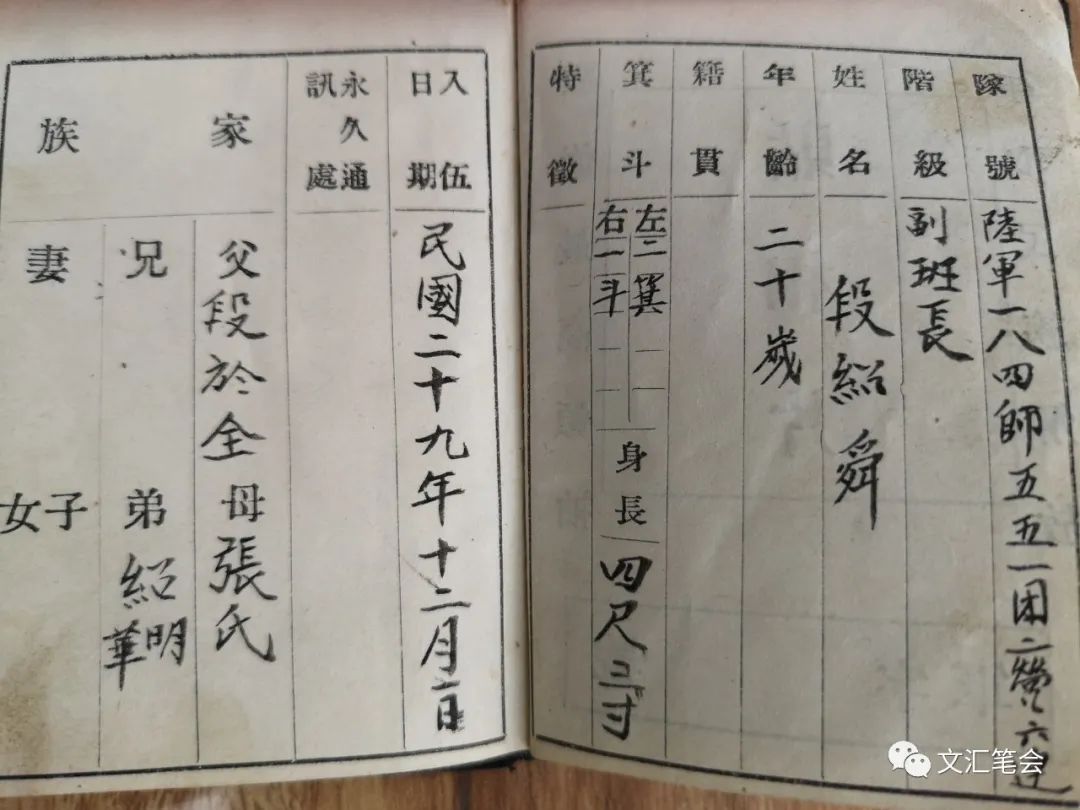 隊號 陸軍一八四師五五一团二營六连
階級 副班長
姓名 段紹舜
年齡 二十歲
籍貫
箕斗 左二箕 右一斗
身長 四尺三寸
特徵
入伍日期 民國二十九年十二月一日
永久通訊處
家族
父段於全 母張氏
兄 弟紹明華
妻 子女
文汇笔会